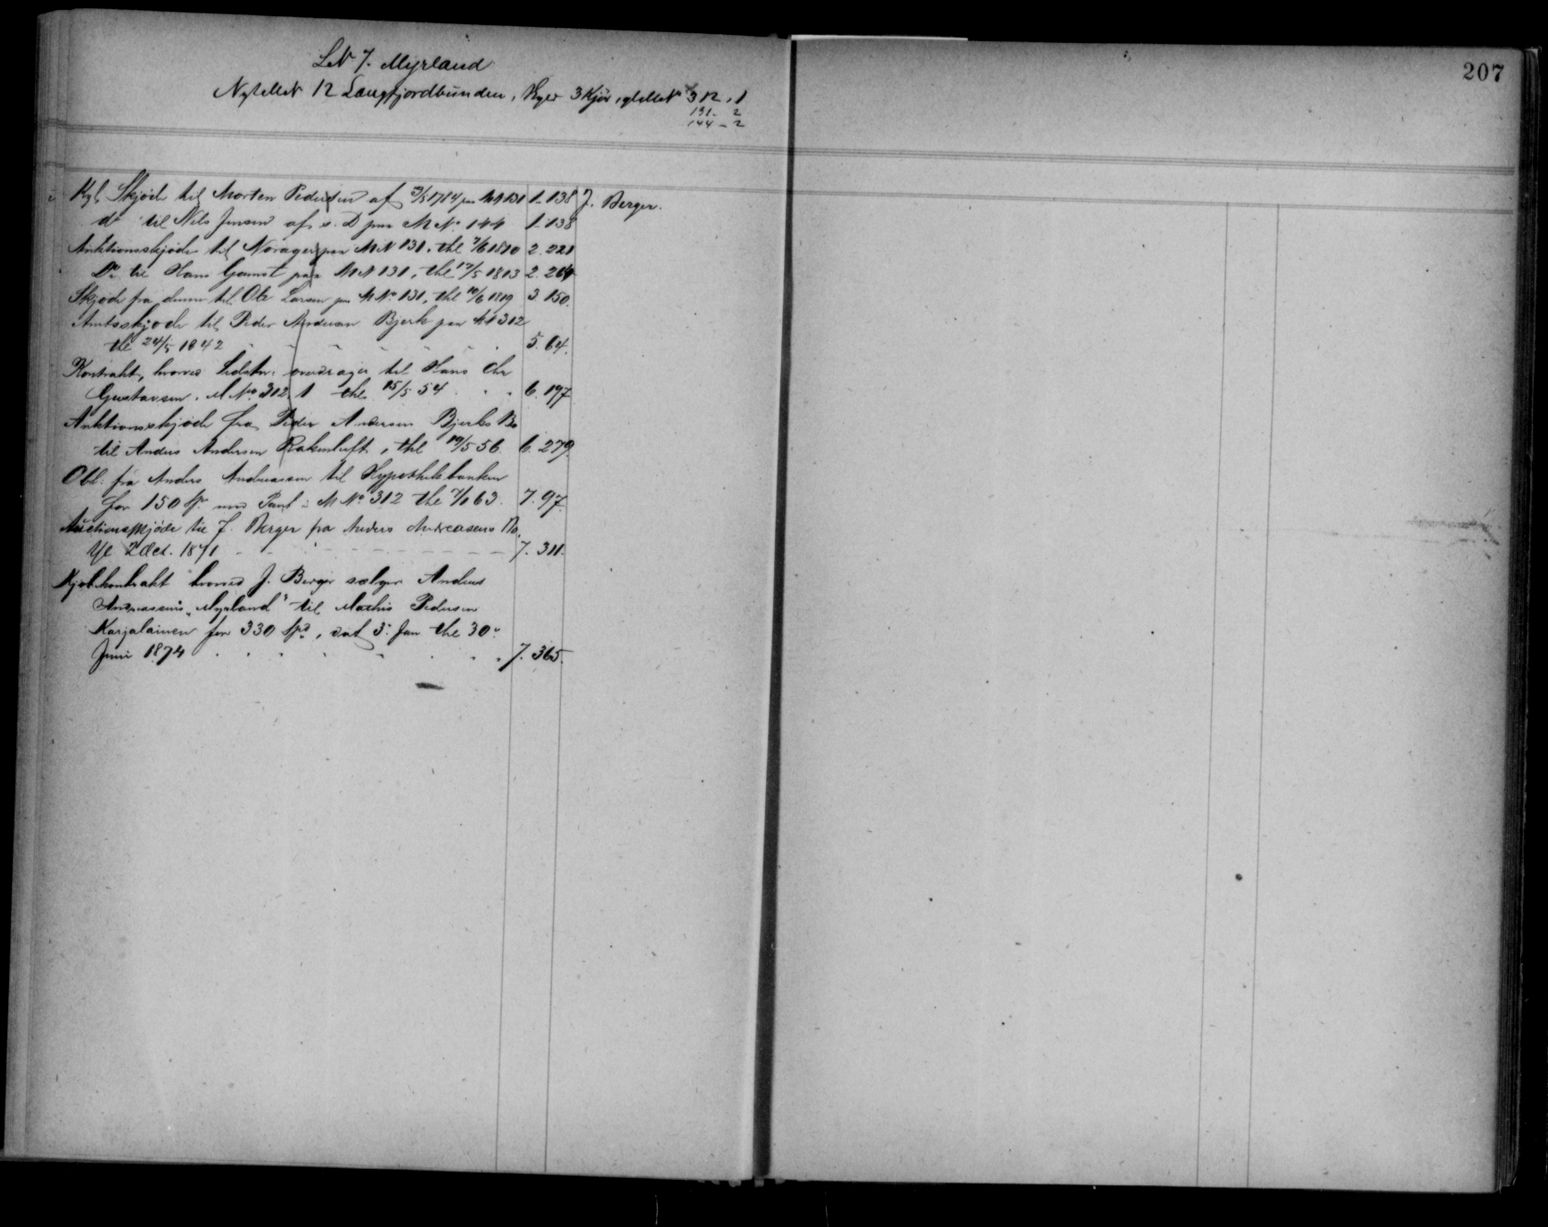 LN 7. Myrland
207
Ny MN 12 Langfjordbunden, 3 Kjør, gl MN 312, 1
131 - 2
144 - 2
Kgl. Skjøde til Morten Pedersen af 1784 paa MN 131 1. 138 J. Berger.
do til Nils Jensen af s. D paa M No 144 1. 138
Auktionsskjøde til Norager paa MN 131, thl 1810 2. 221
Do til Hans Gamst paa MN 131, thl 17/5 1813 2. 264
Skjøde fra denne til Ole Larsen paa M No 131, thl 1819 3 150
Amtsskjøde til Peder Andersen Bjerk paa MN 312
thl 24/5 1842 5. 64.
Kontrakt, hvorved Sidstn. overdrager til Hans Chr
Gustavsen M No 312, 1 thl 15/5 54 6. 197
Auktionsskjøde fra Peder Andersen Bjerks Bo
til Anders Andersen thl 19/5 56 6. 279
Obl. fra Anders Andreassen til Hypothekbanken
for 150 Sp. mod Pant i M No 312 thl 63. 7. 97
Auctionsskjøde til J. Berger fra Anders Andreasens Bo,
2 Oct. 1871 7. 311.
Kjøbekontrakt hvorved J. Berger sælger Anders
Andreassens "Myrland" til Mathis Pedersen
Karjalainen for 330 Spd, dat 3. Jan thl 30.
Juni 1874 7. 365.